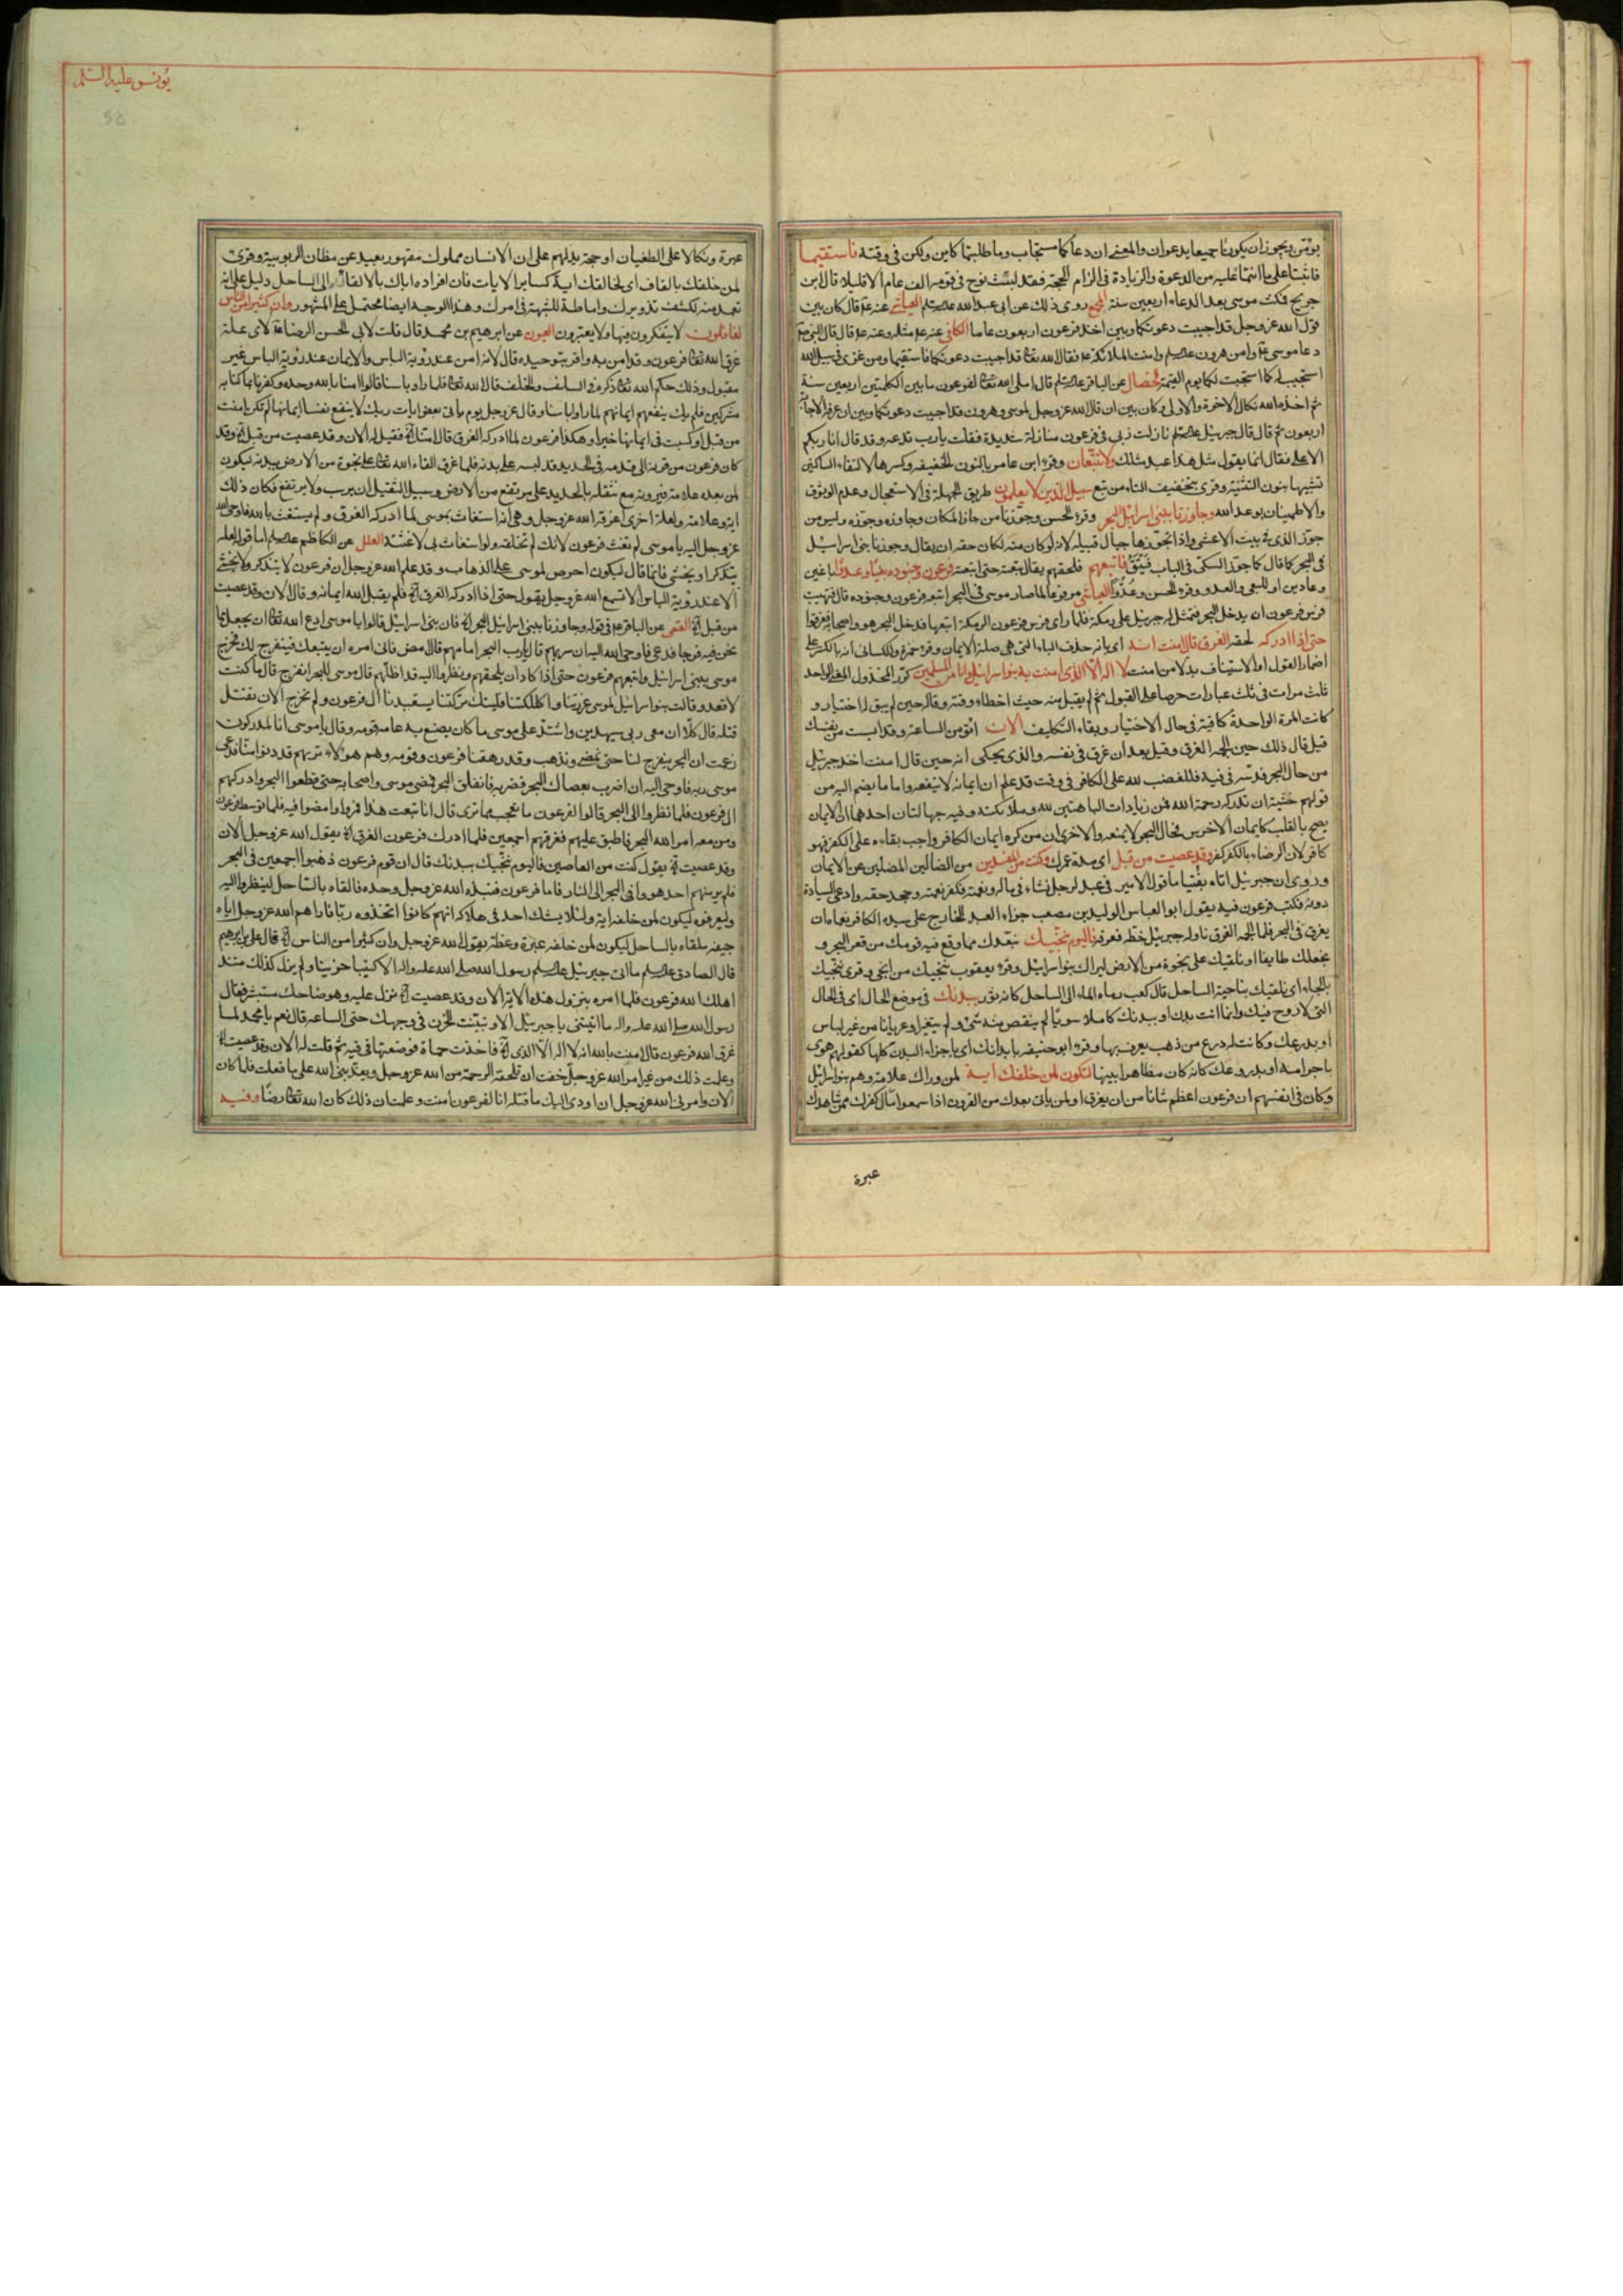 يونس عليه السلام
يؤمن ويجوز ان يكونا جميعا يدعوان والمعنى ان دعاءكما مستجاب وما طلبتما كاين ولكن في وقته فاستقيما
فاثبتا على ما انتما عليه من الدعوة والزيادة في الزام الحجة فقد لبث نوح في قومه الف عام الا قليلا قال ابن
جريج فمكث موسى بعد الدعاء اربعين سنة المجمع روى ذلك عن ابي عبد الله العياشي عنه قال كان بين
قول الله عز وجل قد اجيبت دعوتكما وبين اخذ فرعون اربعون عاما الكافي عنه مثله وعنه قال قال النبي
دعا موسى وامن هرون وامنت الملائكة فقال الله تعالى قد اجيبت دعوتكما فاستقيما ومن غزى في سبيل الله
استجيب له كما استجبت لكما يوم القيمة الخصال عن الباقر قال املى الله تعالى لفرعون ما بين الكلمتين اربعين سنة
ثم اخذه الله نكال الاخرة والاولى وكان بين ان قال الله عز وجل لموسى وهرون قد اجيبت دعوتكما وبين ان عرفه الاجابة
اربعون ثم قال قال جبرئيل نازلت ربي في فرعون منازلة شديدة فقلت يا رب تدعه وقد قال انا ربكم
الاعلى فقال انما يقول مثل هذا عبد مثلك ولا تتبعان وقرء ابن عامر بالنون الخفيفة وكسرها لالتقاء الساكنين
تشبيها بنون التثنية وقرى بتخفيف التاء من تبع سبيل الذين لا يعلمون طريق الجهلة في الاستعجال وعدم الوثوق
والاطمينان بوعد الله وجاوزنا ببني اسرائيل البحر وقرء الحسن وجوزنا من جاز المكان وجاوزه وجوزه وليس من
جوز الذي في بيت الاعشى واذا تجوزها جبال قبيلة لانه لو كان منه لكان حقه ان يقال وجوزنا بني اسرائيل
في البحر كما قال كما جوز السكي في الباب فيتق فاتبعهم فلحقهم يقال تبعته حتى اتبعته فرعون وجنوده بغيا وعدوا باغين
وعادين او للبغي والعدو وقرء الحسن وعدوا العياشي مرفوعا لما صار موسى في البحر اتبعه فرعون وجنوده قال فتهيب
فرس فرعون ان يدخل البحر فتمثل له جبرئيل على رمكة فلما راى فرس فرعون الرمكة اتبعها فدخل البحر هو واصحابه فغرقوا
حتى اذا ادركه لحقه الغرق قال امنت انه اي بانه حذف الباء التي هي صلة الايمان وقرء حمزة والكسائي انه بالكسر على
اضمار القول او الاستيناف بدلا من امنت لا اله الا الذي امنت به بنو اسرائيل وانا من المسلمين كرر المخذول المعنى الواحد
ثلث مرات في ثلث عبارات حرصا على القبول ثم لم يقبل منه حيث اخطاء وقته وقاله حين لم يبق له اختيار و
كانت المرة الواحدة كافية في حال الاختيار وبقاء التكليف الان اتؤمن الساعة وقد ايست من نفسك
قيل قال ذلك حين الجمه الغرق وقيل بعد ان غرق في نفسه والذي يحكى انه حين قال امنت اخذ جبرئيل
من حال البحر فدسه في فيه فللغضب لله على الكافر في وقت قد علم ان ايمانه لا ينفعه واما ما يضم اليه من
قولهم خشية ان تدركه رحمة الله فمن زيادات الباهتين لله وملائكته وفيه جهالتان احدهما ان الايمان
يصح بالقلب كايمان الاخرس فحال البحر لا يمنعه والاخرى ان من كره ايمان الكافر واحب بقاءه على الكفر فهو
كافر لان الرضاء بالكفر كفر وقد عصيت من قبل اي مدة عمرك وكنت من المفسدين من الضالين المضلين عن الايمان
وروى ان جبرئيل اتاه بفتيا ما قول الامير في عبد لرجل نشاء في ماله ونعمته فكفر نعمته وجحد حقه وادعى السيادة
دونه فكتب فرعون فيه يقول ابو العباس الوليد بن مصعب جزاء العبد الخارج على سيده الكافر نعماءه ان
يغرق في البحر فلما الجمه الغرق ناوله جبرئيل خطه فعرفه فاليوم ننجيك نبعدك مما وقع فيه قومك من قعر البحر و
نجعلك طافيا او نلقيك على نجوة من الارض ليراك بنو اسرائيل وقرء يعقوب ننجيك من انجى وقرى ننحيك
بالحاء اي نلقيك بناحية الساحل قال كعب رماه الماء الى الساحل كانه ثور ببدنك في موضع الحال اي في الحال
التي لا روح فيك وانما انت بدن او ببدنك كاملا سويا لم ينقص منه شيء ولم يتغير او عريانا من غير لباس
او بدرعك وكانت له درع من ذهب يعرف بها وقرء ابو حنيفة بابدانك اي باجزاء البدن كلها كقولهم هوى
باجرامه او بدروعك كانه كان مظاهرا بينها لتكون لمن خلفك اية لمن وراك علامة وهم بنو اسرائيل
وكان في انفسهم ان فرعون اعظم شانا من ان يغرق او لمن ياتى بعدك من القرون اذا سمعوا مال كفرك ممن شاهدك
عبرة
عبرة ونكالا على الطغيان او حجة يدلهم على ان الانسان مملوك مقهور بعيد عن مظان الربوبية وقرى
لمن خلقك بالقاف اي لخالقك اية كساير الايات فان افراده اياك بالالقاء الى الساحل دليل على انه
تعمد منه لكشف تزويرك واماطة للشبهة في امرك وهذا الوجه ايضا محتمل على المشهور وان كثيرا من الناس
لغافلون لا يتفكرون فيها ولا يعتبرون العيون عن ابرهيم بن محمد قال قلت لابي الحسن الرضا لاي علة
غرق الله تعالى فرعون وقد امن به واقر بتوحيده قال لانه امن عند رؤية الباس والايمان عند رؤية الباس غير
مقبول وذلك حكم الله تعالى ذكره في السلف والخلف قال الله تعالى فلما راوا باسنا قالوا امنا بالله وحده وكفرنا بما كنا به
مشركين فلم يك ينفعهم ايمانهم لما راوا باسنا وقال عز وجل يوم ياتى بعض ايات ربك لا ينفع نفسا ايمانها لم تكن امنت
من قبل او كسبت في ايمانها خيرا وهكذا فرعون لما ادركه الغرق قال امنت الآية فقيل له الان وقد عصيت من قبل الآية وقد
كان فرعون من قرنه الى قدمه في الحديد قد لبسه على بدنه فلما غرق القاه الله تعالى على نجوة من الارض ببدنه ليكون
لمن بعده علامة فيرونه مع تثقله بالحديد على مرتفع من الارض وسبيل الثقيل ان يرسب ولا يرتفع فكان ذلك
اية وعلامة ولعلة اخرى اغرقه الله عز وجل وهي انه استغاث بموسى لما ادركه الغرق ولم يستغث بالله فاوحى الله
عز وجل اليه يا موسى لم تغث فرعون لانك لم تخلقه ولو استغاث بي لاغثته العلل عن الكاظم اما قوله لعله
يتذكر او يخشى فانما قال ليكون احرص لموسى على الذهاب وقد علم الله عز وجل ان فرعون لا يتذكر ولا يخشى
الا عند رؤية الباس الا تسمع الله عز وجل يقول حتى اذا ادركه الغرق الآية فلم يقبل الله ايمانه وقال الان وقد عصيت
من قبل الآية القمي عن الباقر في قوله وجاوزنا ببني اسرائيل البحر الآية فان بني اسرائيل قالوا يا موسى ادع الله تعالى ان يجعل لنا مما
نحن فيه فرجا فدعى فاوحى الله اليه ان سر بهم قال يا رب البحر امامهم قال امض فاني امره ان يتبعك فينفرج لك فخرج
موسى ببني اسرائيل واتبعهم فرعون حتى اذا كاد ان يلحقهم ونظروا اليه قد اظلهم قال موسى للبحر انفرج قال ما كنت
لافعل وقالت بنو اسرائيل لموسى غررتنا واهلكتنا فليتك تركتنا يستعبدنا ال فرعون ولم نخرج الان نقتل
قتلة قال كلا ان معي ربي سيهدين واشتد على موسى ما كان يصنع به عامة قومه وقال يا موسى انا لمدركون
زعمت ان البحر ينفرج لنا حتى نمضي ونذهب وقد رهقنا فرعون وقومه وهم هؤلاء تريهم قد دنوا منا فدعى
موسى ربه فاوحى اليه ان اضرب بعصاك البحر فضربه فانفلق البحر فمضى موسى واصحابه حتى قطعوا البحر وادركهم
ال فرعون فلما نظروا الى البحر قالوا لفرعون ما تعجب مما ترى قال انا تبعت هذا فمروا وامضوا فيه فلما توسط فرعون
ومن معه امر الله البحر فاطبق عليهم فغرقهم اجمعين فلما ادرك فرعون الغرق الآية يقول الله عز وجل الان
وقد عصيت الآية يقول كنت من العاصين فاليوم ننجيك ببدنك قال ان قوم فرعون ذهبوا اجمعين في البحر
فلم ير منهم احد هووا في البحر الى النار فاما فرعون فنبذه الله عز وجل وحده فالقاه بالساحل لينظروا اليه
وليعرفوه ليكون لمن خلفه اية ولئلا يشك احد في هلاكه انهم كانوا اتخذوه ربا فاراهم الله عز وجل اياه
جيفة ملقاة بالساحل ليكون لمن خلفه عبرة وعظة يقول الله عز وجل وان كثيرا من الناس الآية قال علي بن ابرهيم
قال الصادق ما اتى جبرئيل رسول الله صلى الله عليه واله الا كئيبا حزينا ولم يزل كذلك منذ
اهلك الله فرعون فلما امره بنزول هذه الاية الان وقد عصيت الآية نزل عليه وهو ضاحك مستبشر فقال
رسول الله صلى الله عليه واله ما اتيتني يا جبرئيل الا وتبينت الحزن في وجهك حتى الساعة قال نعم يا محمد لما
غرق الله فرعون قال امنت بالله انه لا اله الا الذي الآية فاخذت حماة فوضعتها في فيه ثم قلت له الان وقد عصيت الآية
وعلمت ذلك من غير امر الله عز وجل خفت ان تلحقه الرحمة من الله عز وجل ويعذبني الله على ما فعلت فلما كان
الان وامرني الله عز وجل ان اودي اليك ما قلته انا لفرعون امنت وعلمت ان ذلك كان الله تعالى رضا وفيه